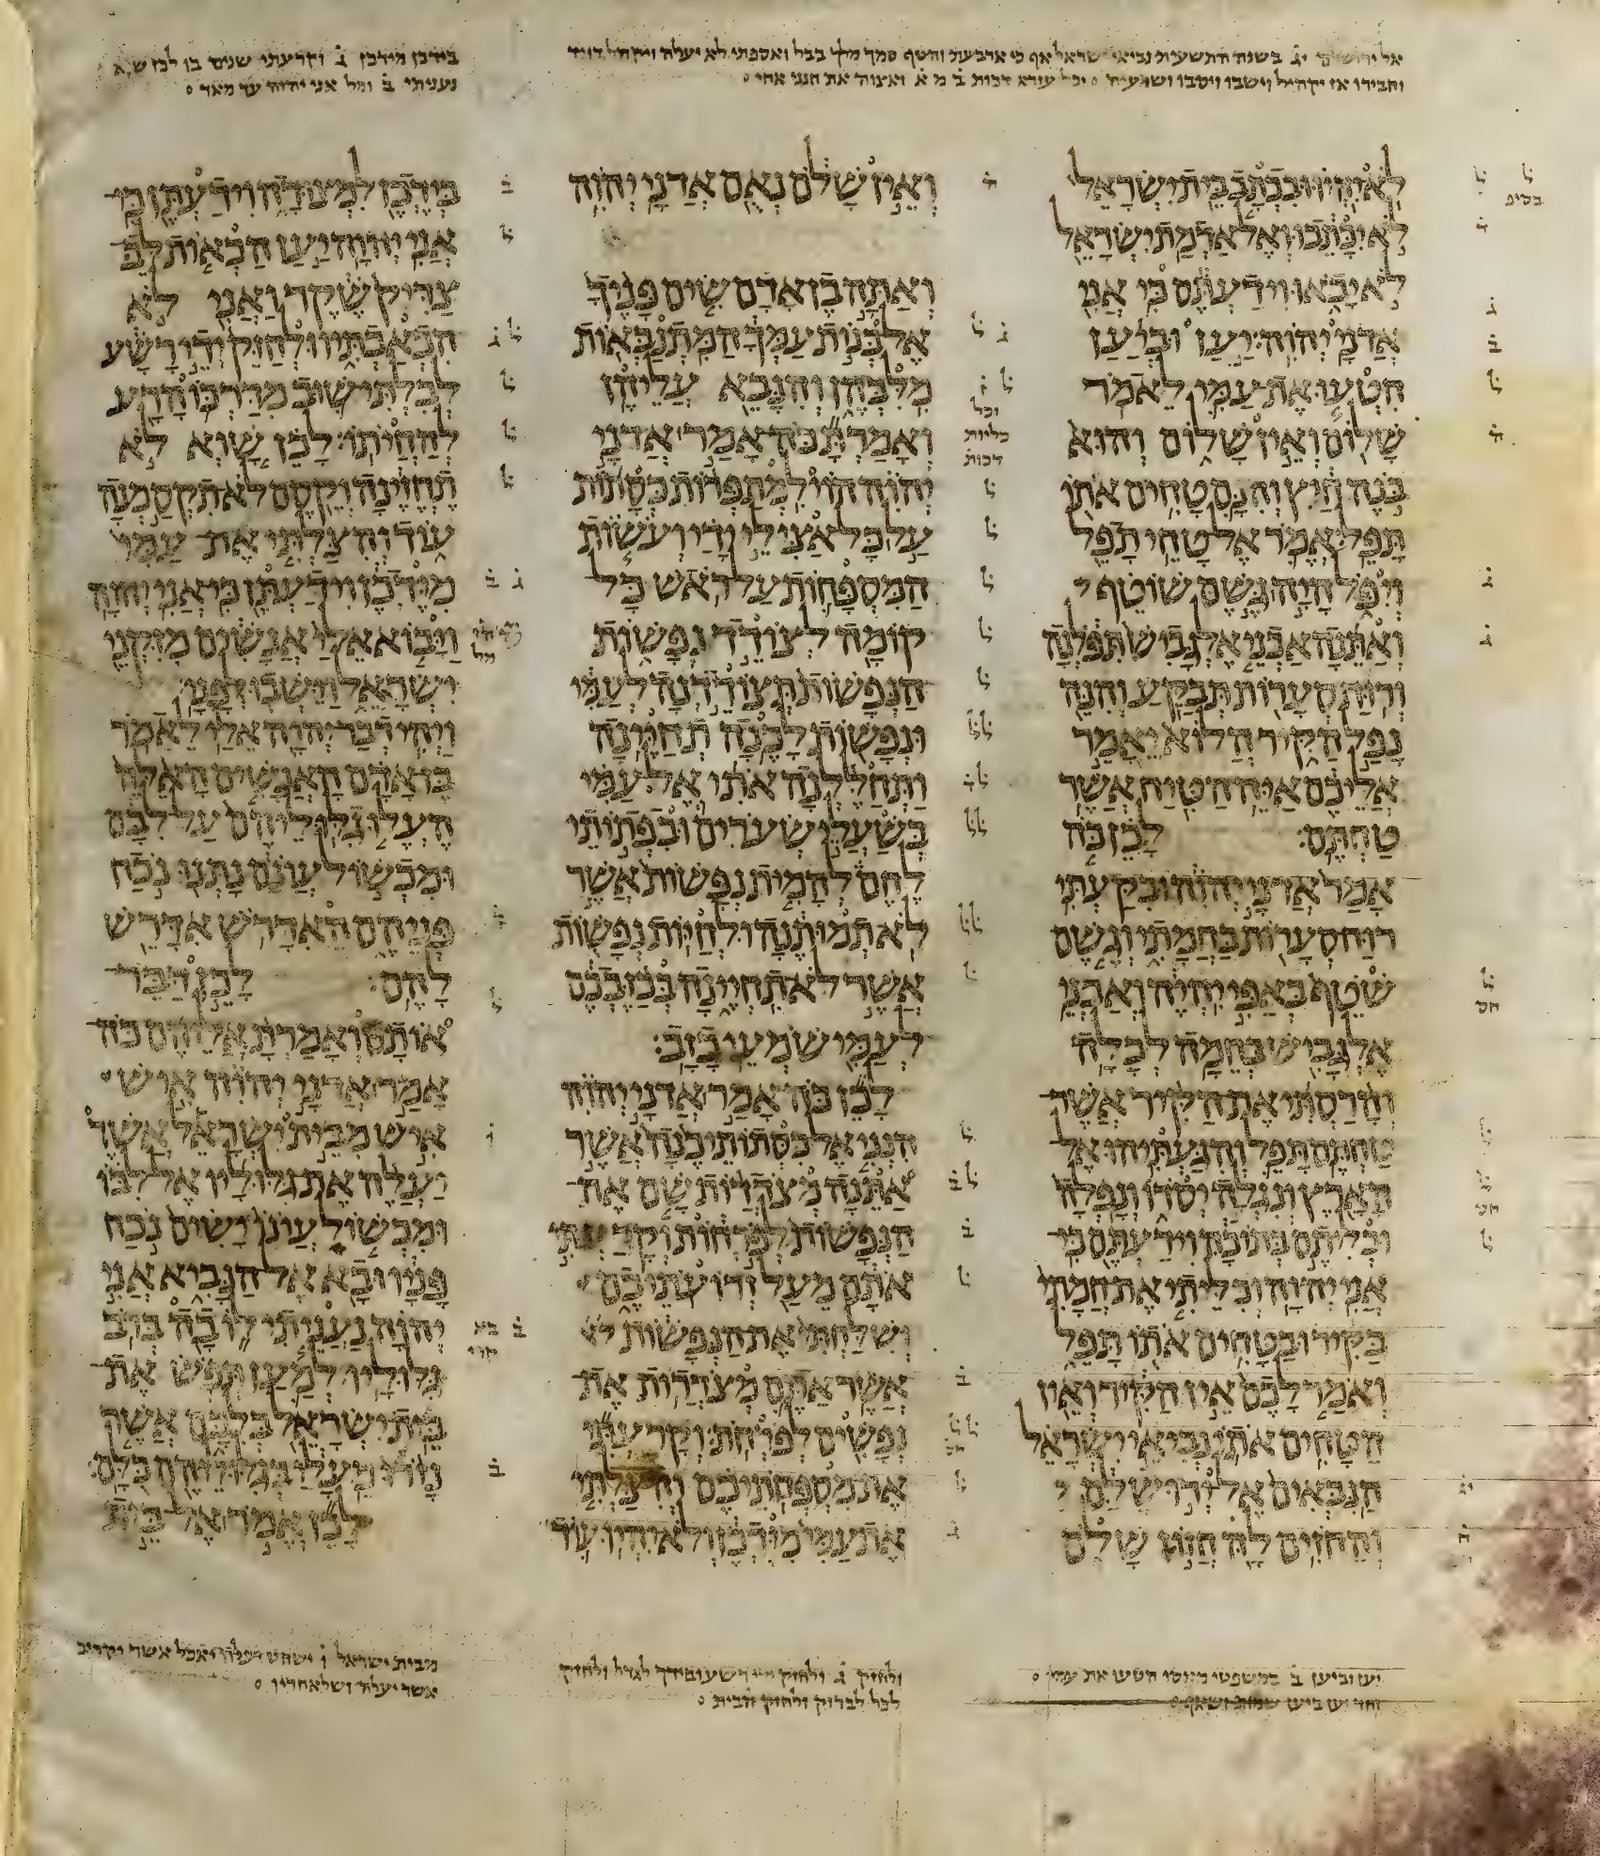 לא יהיו ובכתב בית ישראל
לא יכתבו ואל אדמת ישראל
לא יבאו וידעתם כי אני
אדני יהוה׃ יען וביען
הטעו את עמי לאמר
שלום ואין שלום והוא
בנה חיץ והנם טחים אתו
תפל׃ אמר אל טחי תפל
ויפל היה גשם שוטף
ואתנה אבני אלגביש תפלנה
ורוח סערות תבקע׃ והנה
נפל הקיר הלוא יאמר
אליכם איה הטיח אשר
טחתם׃ לכן כה
אמר אדני יהוה ובקעתי
רוח סערות בחמתי וגשם
שטף באפי יהיה ואבני
אלגביש בחמה לכלה׃
והרסתי את הקיר אשר
טחתם תפל והגעתיהו אל
הארץ ונגלה יסדו ונפלה
וכליתם בתוכה וידעתם כי
אני יהוה׃ וכליתי את חמתי
בקיר ובטחים אתו תפל
ואמר לכם אין הקיר ואין
הטחים אתו׃ נביאי ישראל
הנבאים אל ירושלם
והחזים לה חזון שלם
ואין שלם נאם אדני יהוה׃
ואתה בן אדם שים פניך
אל בנות עמך המתנבאות
מלבהן והנבא עליהן׃
ואמרת כה אמר אדני
יהוה הוי למתפרות כסתות
על כל אצילי ידי ועשות
המספחות על ראש כל
קומה לצודד נפשות
הנפשות תצודדנה לעמי
ונפשות לכנה תחיינה׃
ותחללנה אתי אל עמי
בשעלי שערים ובפתותי
לחם להמית נפשות אשר
לא תמותנה ולחיות נפשות
אשר לא תחיינה בכזבכם
לעמי שמעי כזב׃
לכן כה אמר אדני יהוה
הנני אל כסתותיכנה אשר
אתנה מצדדות שם את
הנפשות לפרחות וקרעתי
אתם מעל זרועתיכם
ושלחתי את הנפשות
אשר אתם מצדדות את
נפשים לפרחת׃ וקרעתי
את מספחתיכם והצלתי
את עמי מידכן ולא יהיו עוד
בידכן למצודה וידעתן כי
אני יהוה׃ יען הכאות לב
צדיק שקר ואני לא
הכאבתיו ולחזק ידי רשע
לבלתי שוב מדרכו הרע
להחיתו׃ לכן שוא לא
תחזינה וקסם לא תקסמנה
עוד והצלתי את עמי
מידכן וידעתן כי אני יהוה׃
ויבוא אלי אנשים מזקני
ישראל וישבו לפני׃
ויהי דבר יהוה אלי לאמר׃
בן אדם האנשים האלה
העלו גלוליהם על לבם
ומכשול עונם נתנו נכח
פניהם האדרש אדרש
להם׃ לכן דבר
אותם ואמרת אליהם כה
אמר אדני יהוה איש
איש מבית ישראל אשר
יעלה את גלוליו אל לבו
ומכשול עונו ישים נכח
פניו ובא אל הנביא אני
יהוה נעניתי לו בה ברב
גלוליו׃ למען תפש את
בית ישראל בלבם אשר
נזרו מעלי בגלוליהם כלם׃
לכן אמר אל בית
יען וביען ב במשפטי
ולחזק ג
לבדוק ולחזק הבית
מבית ישראל ו ישחט יעלה יאכל אשר יקריב